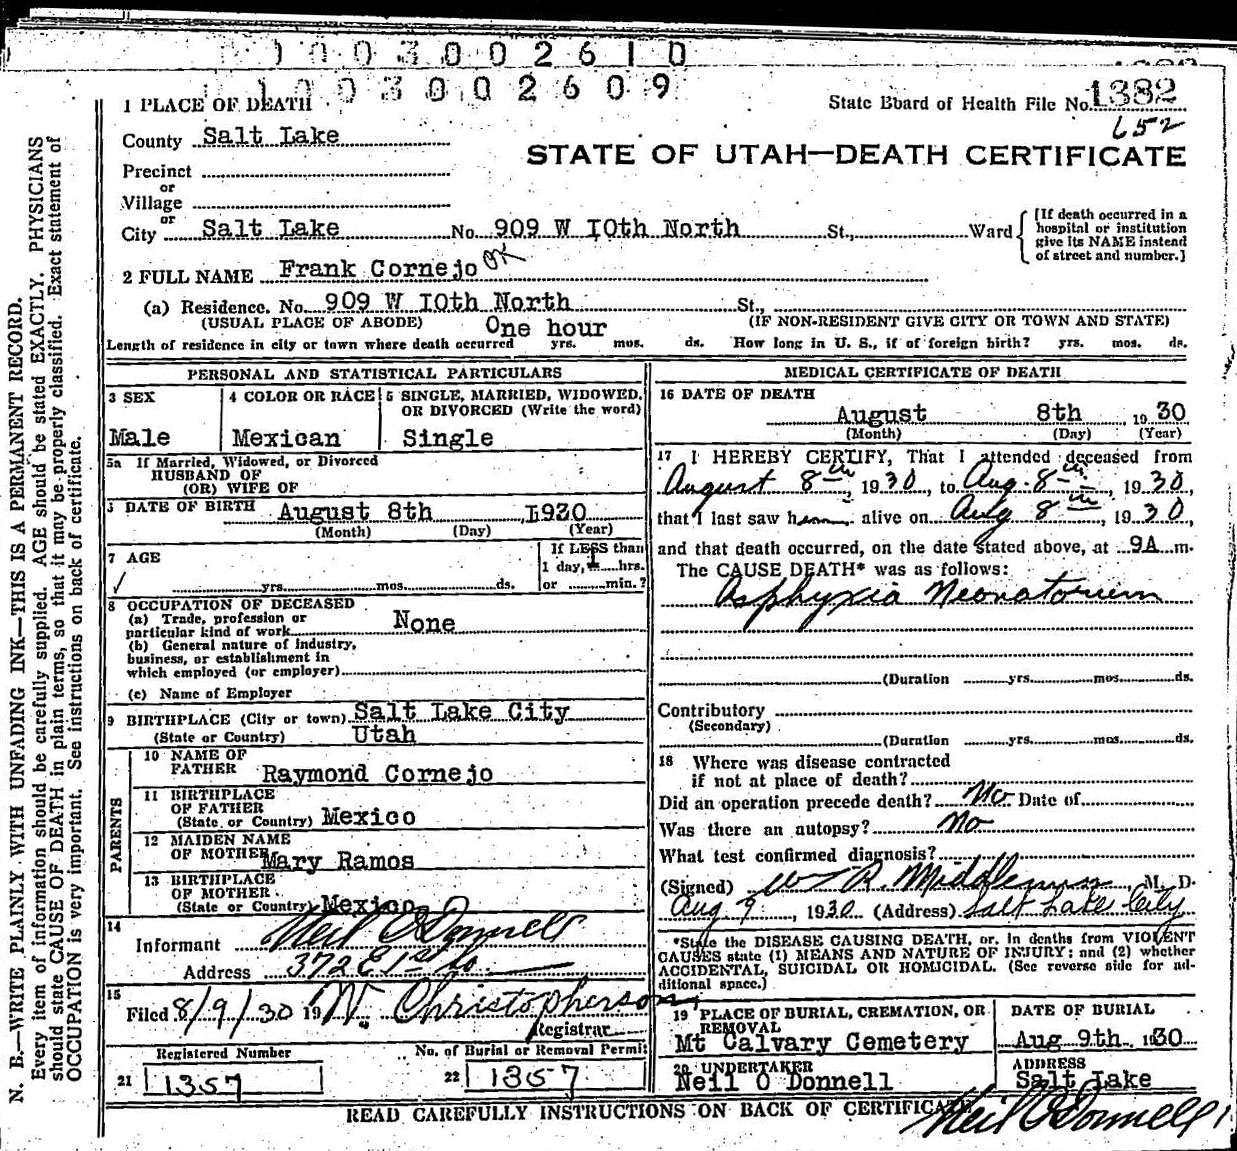 1003002610
1003002609
1 PLACE OF DEATH
State Board of Health File No. 1382
652
County Salt Lake
STATE OF UTAH—DEATH CERTIFICATE
Precinct
or
Village
or
City Salt Lake No. 909 W IOth North St., Ward
[If death occurred in a
hospital or institution
give its NAME instead
of street and number.]
2 FULL NAME Frank Cornejo OK
(a) Residence. No. 909 W IOth North St.,
(USUAL PLACE OF ABODE) (IF NON-RESIDENT GIVE CITY OR TOWN AND STATE)
One hour
Length of residence in city or town where death occurred yrs. mos. ds. How long in U. S., if of foreign birth? yrs. mos. ds.
PERSONAL AND STATISTICAL PARTICULARS
3 SEX
Male
4 COLOR OR RACE
Mexican
5 SINGLE, MARRIED, WIDOWED,
OR DIVORCED (Write the word)
Single
5a If Married, Widowed, or Divorced
HUSBAND OF
(OR) WIFE OF
DATE OF BIRTH August 8th I930
(Month) (Day) (Year)
7 AGE
yrs. mos. ds.
If LESS than
1 day, 1 hrs.
or min.?
8 OCCUPATION OF DECEASED
(a) Trade, profession or
particular kind of work None
(b) General nature of industry,
business, or establishment in
which employed (or employer)
(c) Name of Employer
9 BIRTHPLACE (City or town) Salt Lake City
(State or Country) Utah
PARENTS
10 NAME OF
FATHER Raymond Cornejo
11 BIRTHPLACE
OF FATHER
(State or Country) Mexico
12 MAIDEN NAME
OF MOTHER Mary Ramos
13 BIRTHPLACE
OF MOTHER
(State or Country) Mexico
14
Informant Neil O Donnell
Address 372 E 1st So
15
Filed 8/9/30 19 W. Christopherson
Registrar
Registered Number
21 1357
No. of Burial or Removal Permit
22 1357
MEDICAL CERTIFICATE OF DEATH
16 DATE OF DEATH
August 8th 1930
(Month) (Day) (Year)
17 I HEREBY CERTIFY, That I attended deceased from
August 8th 1930, to Aug. 8th, 1930,
that I last saw him alive on Aug 8th, 1930,
and that death occurred, on the date stated above, at 9A m.
The CAUSE DEATH* was as follows:
Asphyxia Neonatorum
(Duration yrs. mos. ds.
Contributory
(Secondary)
(Duration yrs. mos. ds.
18 Where was disease contracted
if not at place of death?
Did an operation precede death? No Date of
Was there an autopsy? No
What test confirmed diagnosis?
(Signed) W R Middlemiss, M. D.
Aug 9, 1930 (Address) Salt Lake City
*State the DISEASE CAUSING DEATH, or. In deaths from VIOLENT
CAUSES state (1) MEANS AND NATURE OF INJURY; and (2) whether
ACCIDENTAL, SUICIDAL OR HOMICIDAL. (See reverse side for ad-
ditional space.)
19 PLACE OF BURIAL, CREMATION, OR
REMOVAL
Mt Calvary Cemetery
DATE OF BURIAL
Aug 9th 1930
20 UNDERTAKER
Neil O Donnell
ADDRESS
Salt Lake
Neil O'Donnell
READ CAREFULLY INSTRUCTIONS ON BACK OF CERTIFICATE
N. B.—WRITE PLAINLY WITH UNFADING INK—THIS IS A PERMANENT RECORD.
Every item of information should be carefully supplied. AGE should be stated EXACTLY. PHYSICIANS
should state CAUSE OF DEATH in plain terms, so that it may be properly classified. Exact statement of
OCCUPATION is very important. See instructions on back of certificate.